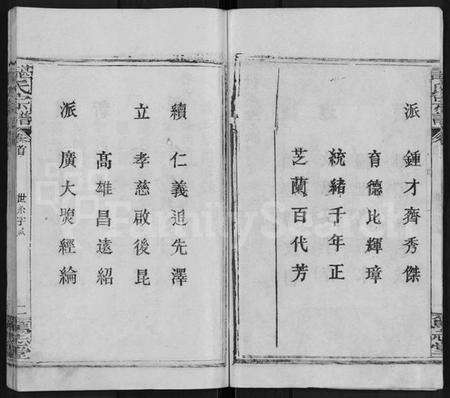 派 鍾才齊秀傑
育德比輝璋
統緒千年正
芝蘭百代芳
續 仁義追先澤
立 孝慈啟後昆
高雄昌遠紹
派 廣大聚經綸
氏宗譜
卷首
世系字派
FamilySearch